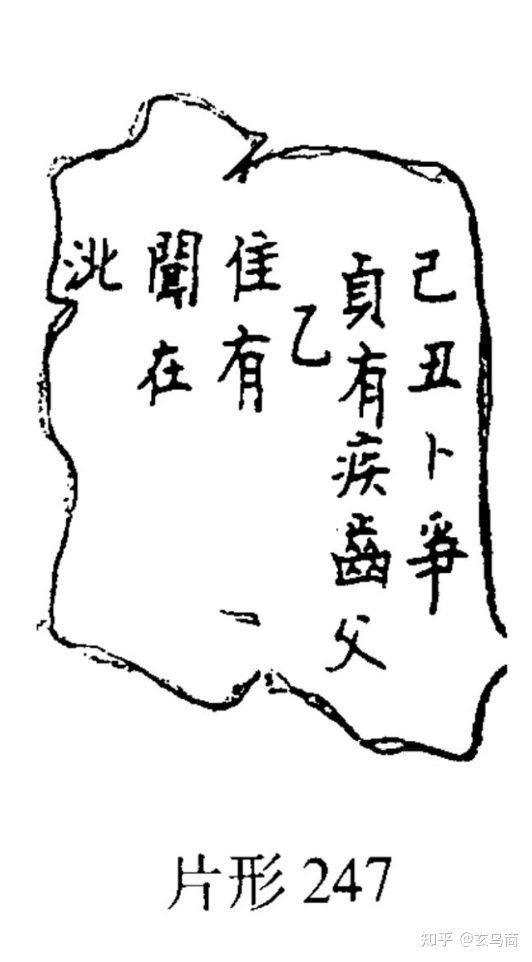 己丑卜爭
貞有疾齒父
乙
隹有
聞在
洮
一
片形 247
知乎 @玄鸟商